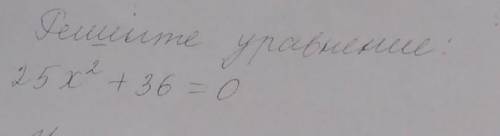 Решите уравнение:
25x² + 36 = 0